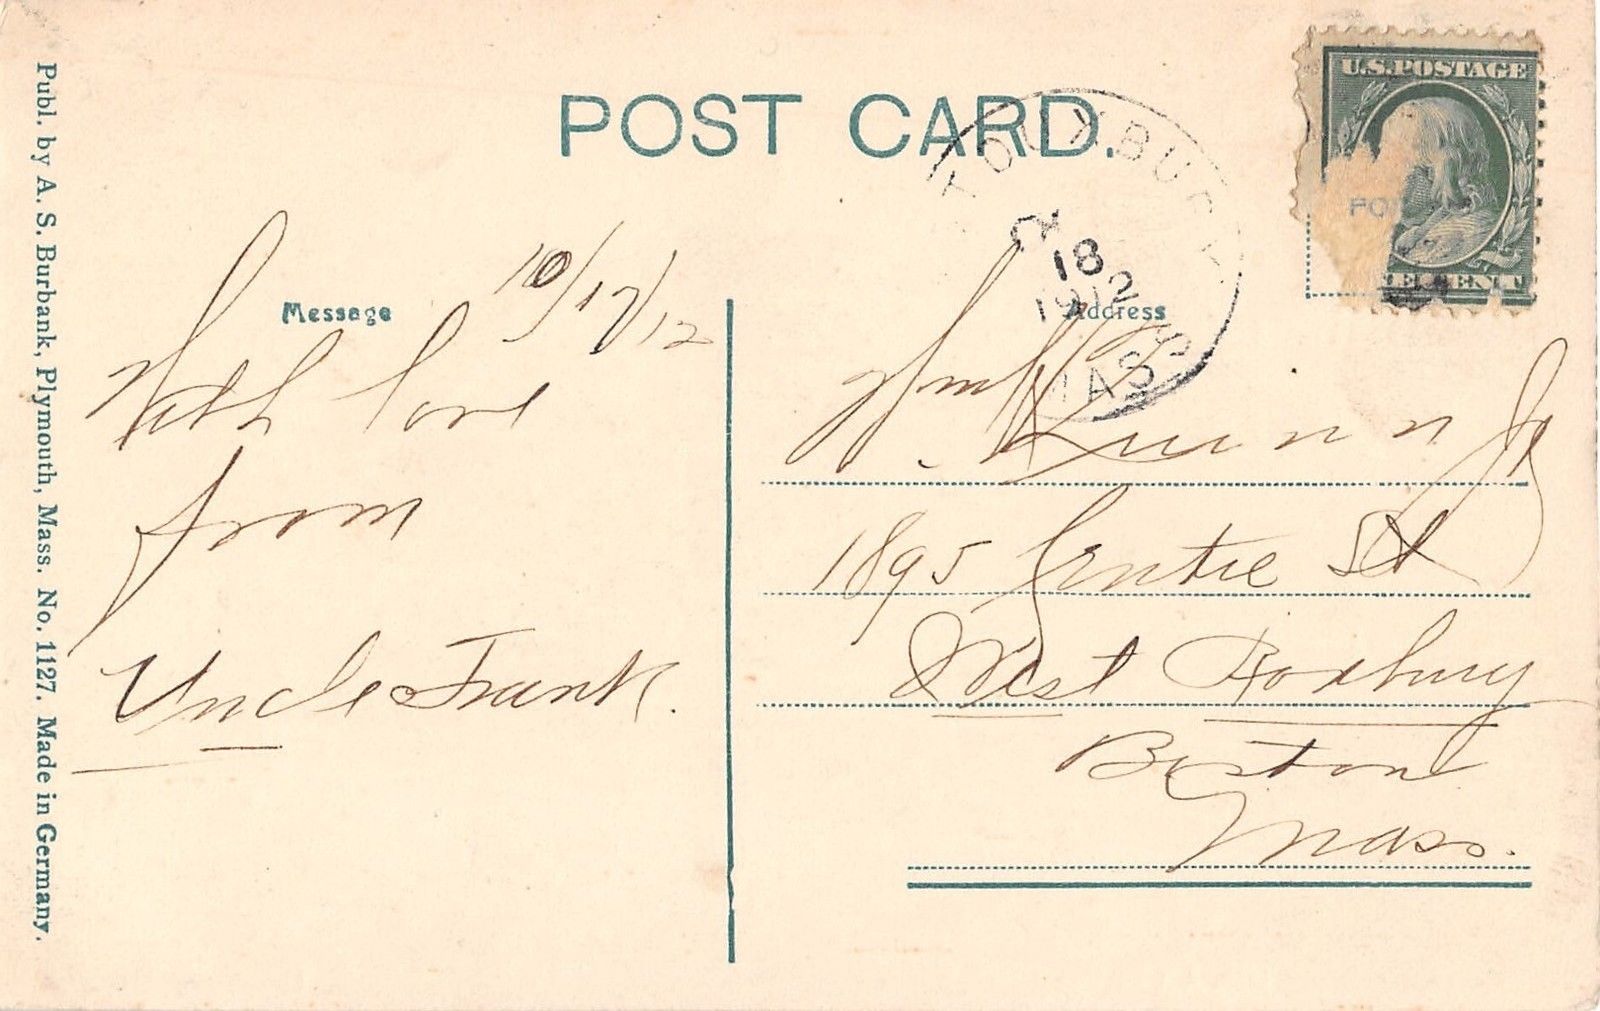 Publ. by A. S. Burbank, Plymouth, Mass. No. 1127. Made in Germany.
POST CARD.
U.S. POSTAGE
18
1912
MASS
Message
Address
10/17/12
With love
from
Uncle Frank.
Wm Quinn Jr
1895 Centre St
West Roxbury
Boston
Mass.